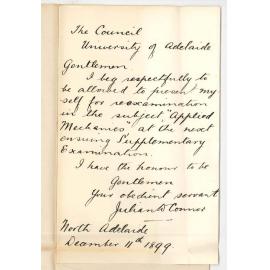 The Council
University of Adelaide
Gentlemen
I beg respectfully to
be allowed to present my
self for reexamination
in the subject, "Applied
Mechanics" at the next
ensuing Supplementary
Examination.
I have the honour to be
Gentlemen
Your obedient servant
Julian D Connor
North Adelaide
December 11th 1899